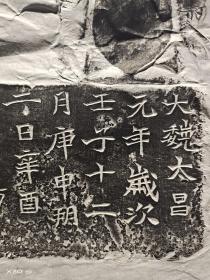 大魏太昌
元年歲次
壬子十二
月庚申朔
二日辛酉